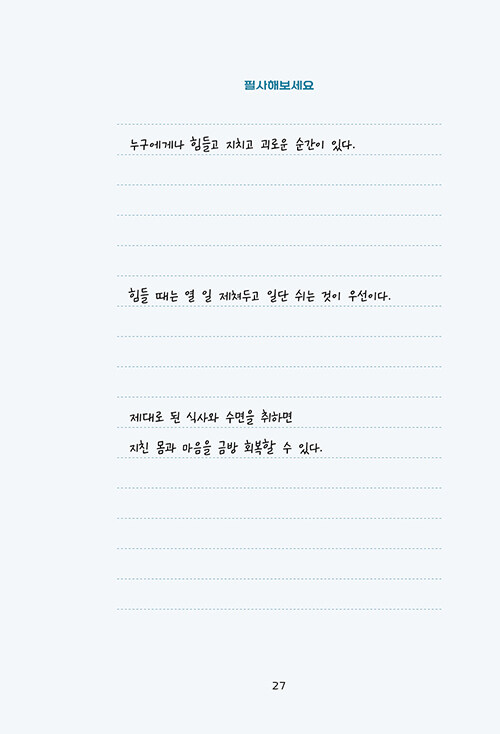 필사해보세요
누구에게나 힘들고 지치고 괴로운 순간이 있다.
힘들 때는 열 일 제쳐두고 일단 쉬는 것이 우선이다.
제대로 된 식사와 수면을 취하면
지친 몸과 마음을 금방 회복할 수 있다.
27